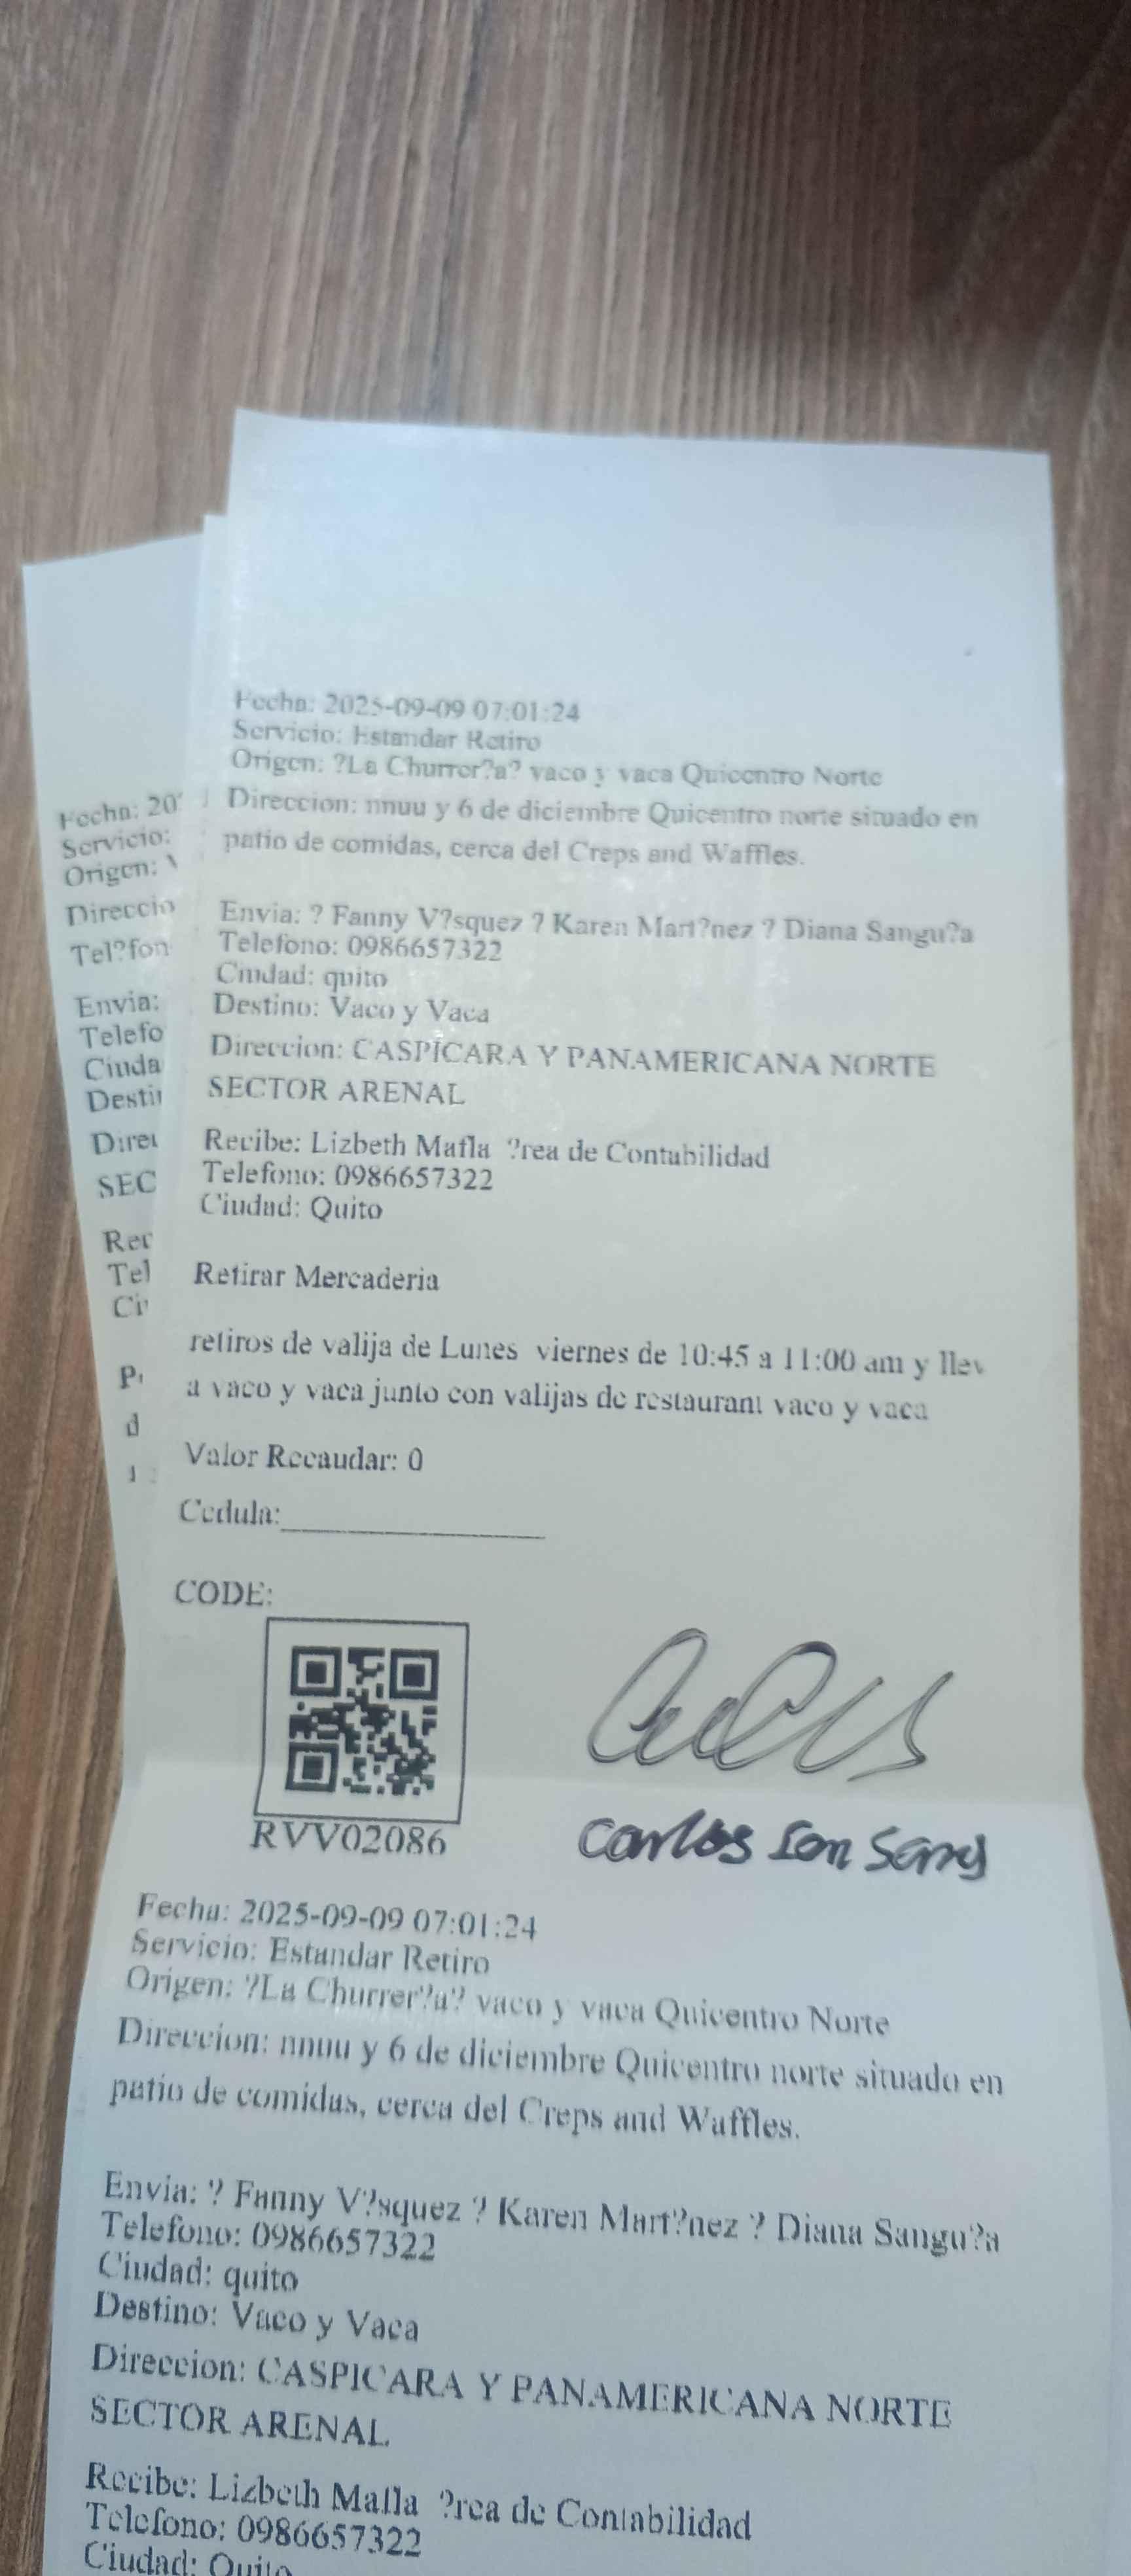 Fecha: 2025-09-09 07:01:24
Servicio: Estandar Retiro
Origen: ?La Churrer?a? vaco y vaca Quicentro Norte
Direccion: nnuu y 6 de diciembre Quicentro norte situado en
patio de comidas, cerca del Creps and Waffles.
Envia: ? Fanny V?squez ? Karen Mart?nez ? Diana Sangu?a
Telefono: 0986657322
Ciudad: quito
Destino: Vaco y Vaca
Direccion: CASPICARA Y PANAMERICANA NORTE
SECTOR ARENAL
Recibe: Lizbeth Mafla ?rea de Contabilidad
Telefono: 0986657322
Ciudad: Quito
Retirar Mercaderia
retiros de valija de Lunes viernes de 10:45 a 11:00 am y llev
a vaco y vaca junto con valijas de restaurant vaco y vaca
Valor Recaudar: 0
Cedula:
CODE:
RVV02086
Carlos
Fecha: 2025-09-09 07:01:24
Servicio: Estandar Retiro
Origen: ?La Churrer?a? vaco y vaca Quicentro Norte
Direccion: nnuu y 6 de diciembre Quicentro norte situado en
patio de comidas, cerca del Creps and Waffles.
Envia: ? Fanny V?squez ? Karen Mart?nez ? Diana Sangu?a
Telefono: 0986657322
Ciudad: quito
Destino: Vaco y Vaca
Direccion: CASPICARA Y PANAMERICANA NORTE
SECTOR ARENAL
Recibe: Lizbeth Mafla ?rea de Contabilidad
Telefono: 0986657322
Ciudad: Quito
Fecha: 20
Servicio:
Origen:
Direccio
Tel?fon
Envia:
Telefo
Ciuda
Desti
Dire
SEC
Rec
Tel
Ci
P
d